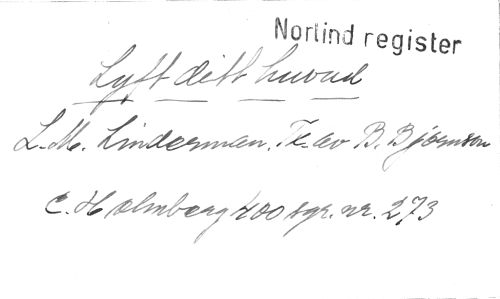 Norlind register
Lyft ditt huvud
L.M. Linderman. Tk. av B. Bjørnson
C. Holmberg 400 sgr. nr. 273